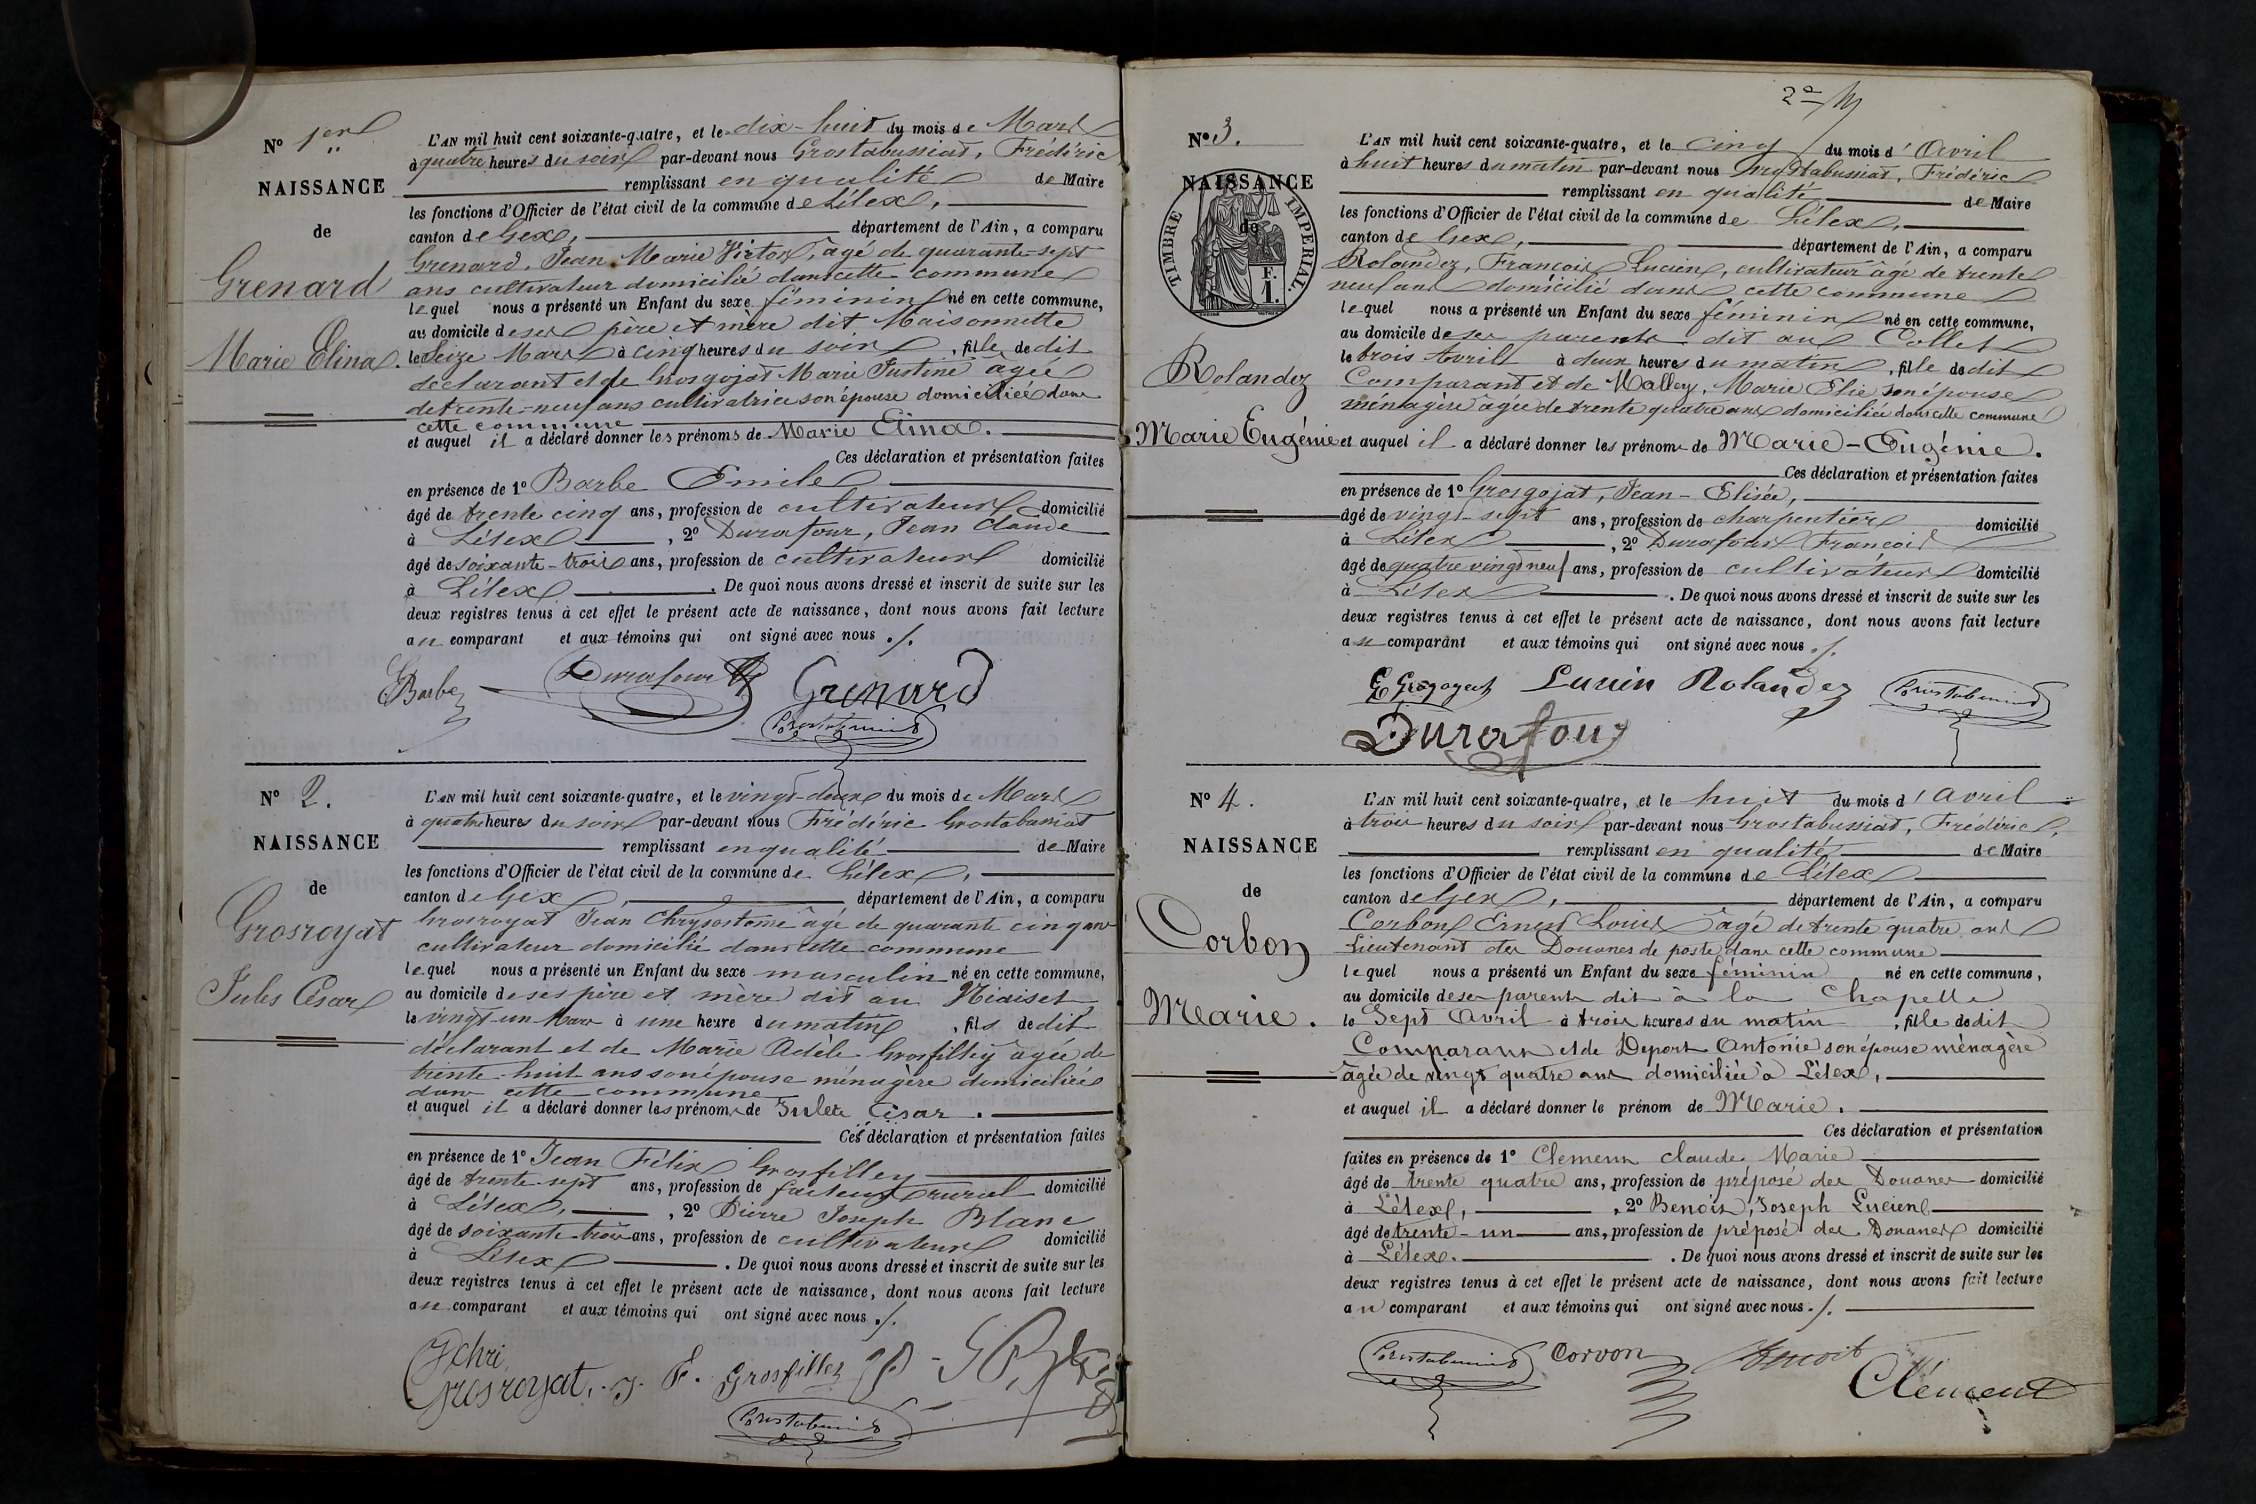 N° 1er
NAISSANCE
de
Grenard
Marie Elina.
L'AN mil huit cent soixante-quatre, et le dix-huit du mois de Mars
à quatre heures du soir par-devant nous Grostabussiat, Frédéric
remplissant en qualité de Maire
les fonctions d'Officier de l'état civil de la commune de Lélex,
canton de Gex, département de l'Ain, a comparu
Grenard, Jean Marie Victor, âgé de quarante-sept
ans cultivateur domicilié dans cette commune
lequel nous a présenté un Enfant du sexe féminin né en cette commune,
au domicile de ses père et mère dit Maisonnette
le Seize Mars à cinq heures du soir, fille de dit
déclarant et de Grosgojat Marie Justine âgée
de trente-neuf ans cultivatrice son épouse domiciliée dans
cette commune
et auquel il a déclaré donner les prénoms de Marie Elina.
Ces déclaration et présentation faites
en présence de 1° Barbe Emile
âgé de trente cinq ans, profession de cultivateur domicilié
à Lélex, 2° Durafour, Jean Claude
âgé de soixante-trois ans, profession de cultivateur domicilié
à Lélex. De quoi nous avons dressé et inscrit de suite sur les
deux registres tenus à cet effet le présent acte de naissance, dont nous avons fait lecture
au comparant et aux témoins qui ont signé avec nous ./.
Barbe Durafour Grenard
Grostabussiat
N° 2.
NAISSANCE
de
Grosroyat
Jules César
L'AN mil huit cent soixante-quatre, et le vingt-deux du mois de Mars
à quatre heures du soir par-devant nous Frédéric Grostabussiat
remplissant en qualité de Maire
les fonctions d'Officier de l'état civil de la commune de Lélex,
canton de Gex, département de l'Ain, a comparu
Grosroyat Jean Chrysostome âgé de quarante cinq ans
cultivateur domicilié dans cette commune
lequel nous a présenté un Enfant du sexe masculin né en cette commune,
au domicile de ses père et mère dit au Niaiset
le vingt-un Mars à une heure du matin, fils de dit
déclarant et de Marie Adèle Grosfilley âgée de
trente-huit ans son épouse ménagère domiciliée
dans cette commune
et auquel il a déclaré donner les prénoms de Jules César.
Ces déclaration et présentation faites
en présence de 1° Jean Félix Grosfilley
âgé de trente-sept ans, profession de facteur rural domicilié
à Lélex, 2° Pierre Joseph Blanc
âgé de soixante-trois ans, profession de cultivateur domicilié
à Lélex. De quoi nous avons dressé et inscrit de suite sur les
deux registres tenus à cet effet le présent acte de naissance, dont nous avons fait lecture
au comparant et aux témoins qui ont signé avec nous ./.
Jchri
Grosroyat. J. F. Grosfilley
Grostabussiat
N° 3.
NAISSANCE
de
TIMBRE IMPERIAL
F.
1.
Rolandez
Marie Eugénie
L'AN mil huit cent soixante-quatre, et le cinq du mois d'Avril
à huit heures du matin par-devant nous Grostabussiat, Frédéric
remplissant en qualité de Maire
les fonctions d'Officier de l'état civil de la commune de Lélex,
canton de Gex, département de l'Ain, a comparu
Rolandez, François Lucien, cultivateur âgé de trente
neuf ans domicilié dans cette commune
lequel nous a présenté un Enfant du sexe féminin né en cette commune,
au domicile de ses parents dit au Collet
le trois Avril à deux heures du matin, fille de dit
Comparant et de Malley, Marie Elie son épouse
ménagère âgée de trente quatre ans domiciliée dans cette commune
et auquel il a déclaré donner les prénoms de Marie-Eugénie.
Ces déclaration et présentation faites
en présence de 1° Grosgojat, Jean-Elisée,
âgé de vingt-sept ans, profession de charpentier domicilié
à Lélex, 2° Durafour François
âgé de quatre vingt neuf ans, profession de cultivateur domicilié
à Lélex. De quoi nous avons dressé et inscrit de suite sur les
deux registres tenus à cet effet le présent acte de naissance, dont nous avons fait lecture
au comparant et aux témoins qui ont signé avec nous ./.
Grosgojat Lucien Rolandez Grostabussiat
Durafour
N° 4.
NAISSANCE
de
Corbon
Marie.
L'AN mil huit cent soixante-quatre, et le huit du mois d'Avril
à trois heures du soir par-devant nous Grostabussiat, Frédéric,
remplissant en qualité de Maire
les fonctions d'Officier de l'état civil de la commune de Lélex
canton de Gex, département de l'Ain, a comparu
Corbon Ernest Louis âgé de trente quatre ans
Lieutenant des Douanes de poste dans cette commune
lequel nous a présenté un Enfant du sexe féminin né en cette commune,
au domicile de ses parents dit à la Chapelle
le Sept Avril à trois heures du matin, fille de dit
Comparant et de Deport Antonie son épouse ménagère
âgée de vingt quatre ans domiciliée à Lélex,
et auquel il a déclaré donner le prénom de Marie.
Ces déclaration et présentation
faites en présence de 1° Clement claude Marie
âgé de trente quatre ans, profession de préposé des Douanes domicilié
à Lélex, 2° Benoit, Joseph Lucien
âgé de trente-un ans, profession de préposé des Douanes domicilié
à Lélex. De quoi nous avons dressé et inscrit de suite sur les
deux registres tenus à cet effet le présent acte de naissance, dont nous avons fait lecture
au comparant et aux témoins qui ont signé avec nous ./.
Grostabussiat Corvon Benoit
Clément